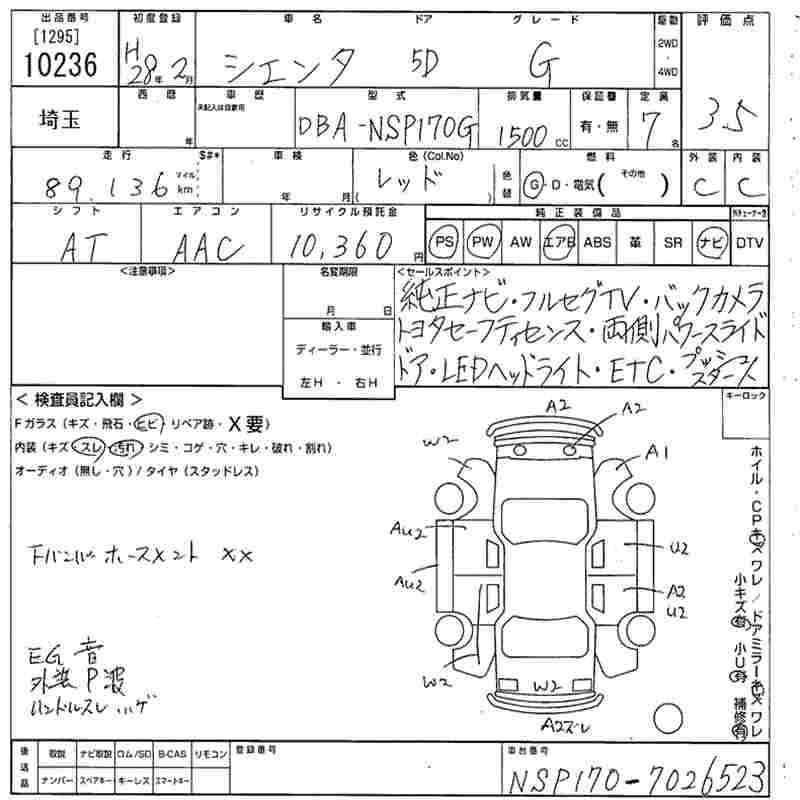 出品番号 初度登録 車名 ドア グレード 駆動 評価点
[1295]
10236 H28年2月 シエンタ 5D G 2WD・4WD 3.5
西暦 車歴 型式 排気量 保証書 定員
埼玉 年 未記入は自家用 DBA-NSP170G 1500cc 有・無 7名
走行 S#* 車検 色(Col.No) 燃料 外装 内装
89,136 マイル km 年 月 レッド ( ) 色替 G・D・電気( その他 ) C C
シフト エアコン リサイクル預託金 純正装備品
AT AAC 10,360円 PS PW AW エアB ABS 革 SR ナビ DTV
<注意事項> 名変期限 <セールスポイント>
月 日 純正ナビ・フルセグTV・バックカメラ
輸入車 トヨタセーフティセンス・両側パワースライド
ディーラー・並行 ドア・LEDヘッドライト・ETC・プッシュスタート
左H・右H
<検査員記入欄> キーロック
Fガラス(キズ・飛石・ヒビ・リペア跡・X要)
内装(キズ・スレ・汚れ・シミ・コゲ・穴・キレ・破れ・割れ)
オーディオ(無し・穴)/タイヤ(スタッドレス)
A2 A2
W2 A1
AU2 U2
AU2 A2
U2
W2 W2
A2ズレ
Fバンパーホースメント XX
EG音
外装P波
ハンドルスレ ハゲ
ホイル・CPキズワレ/ドアミラーキズワレ
小キズ有 小U有 補修有
後送品 取説 ナビ取説 ロム/SD B-CAS リモコン 登録番号 車台番号
ナンバー スペアキー キーレス スマートキー NSP170-7026523